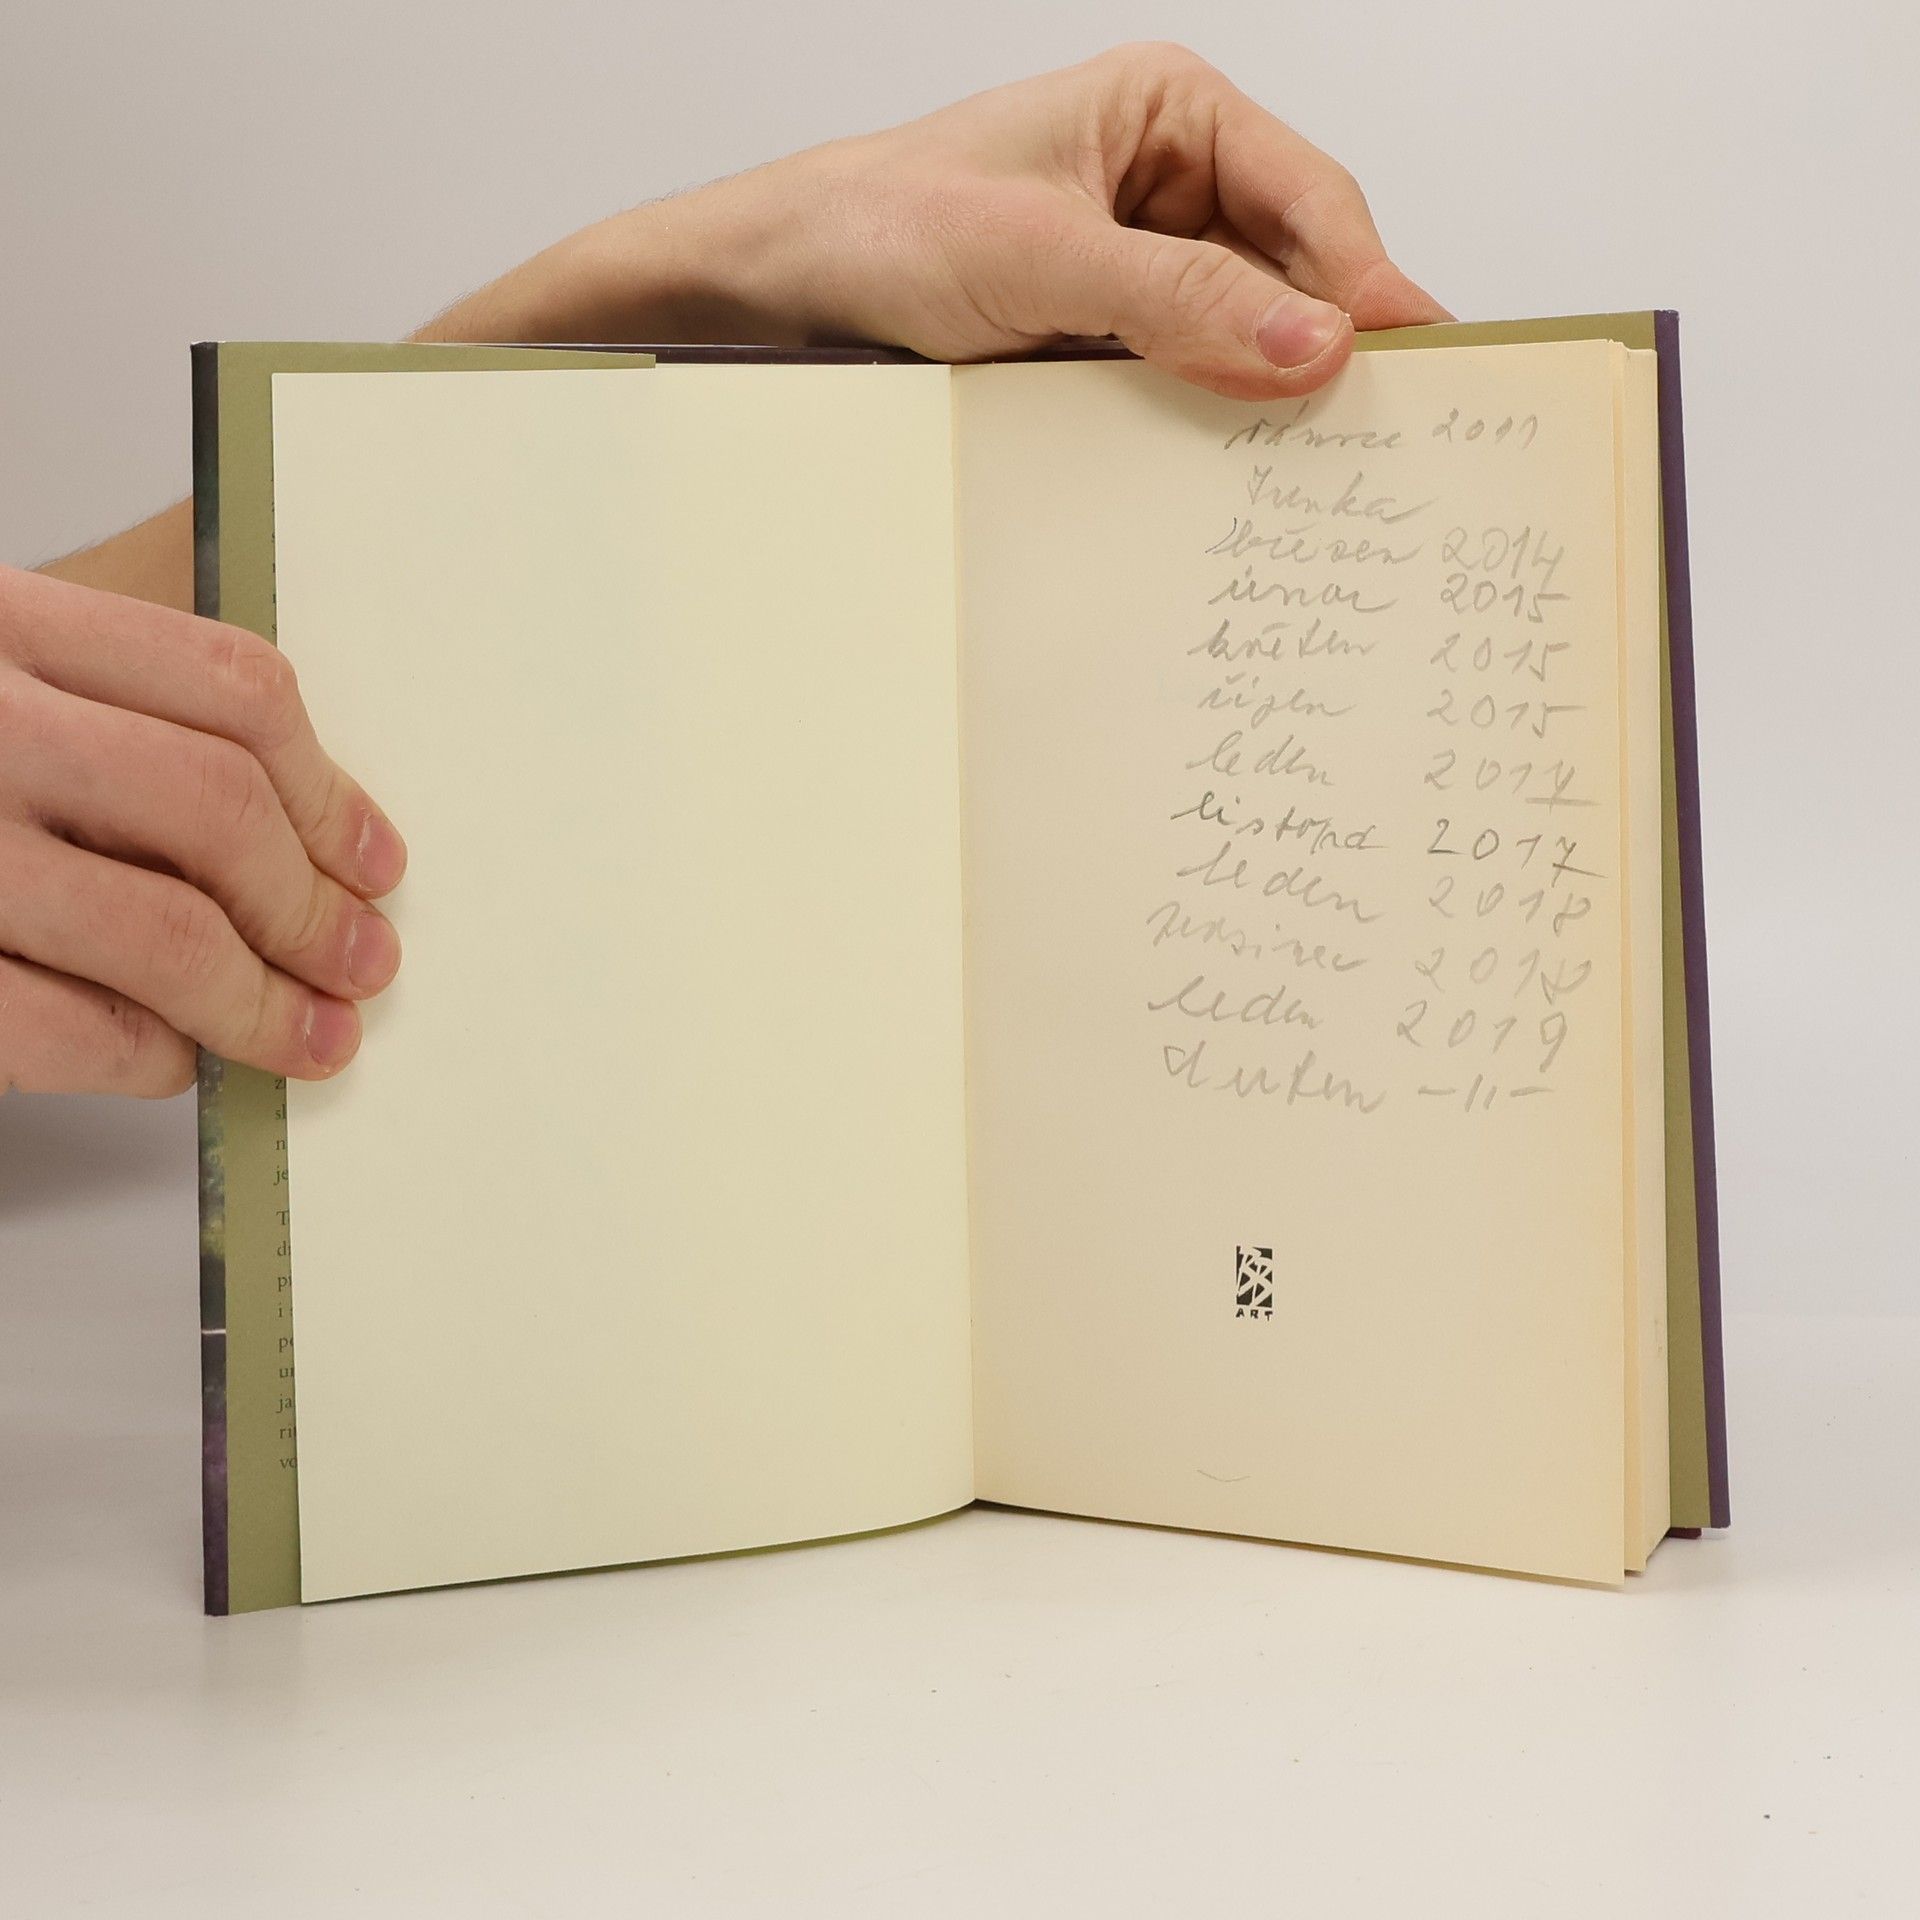 vánoce 2011
Junka
březen 2014
únor 2015
květen 2015
říjen 2015
leden 2017
listopad 2017
leden 2018
prosinec 2018
leden 2019
duben -11-
BB
ART
sl
n
je
T
d
i
ja
vo